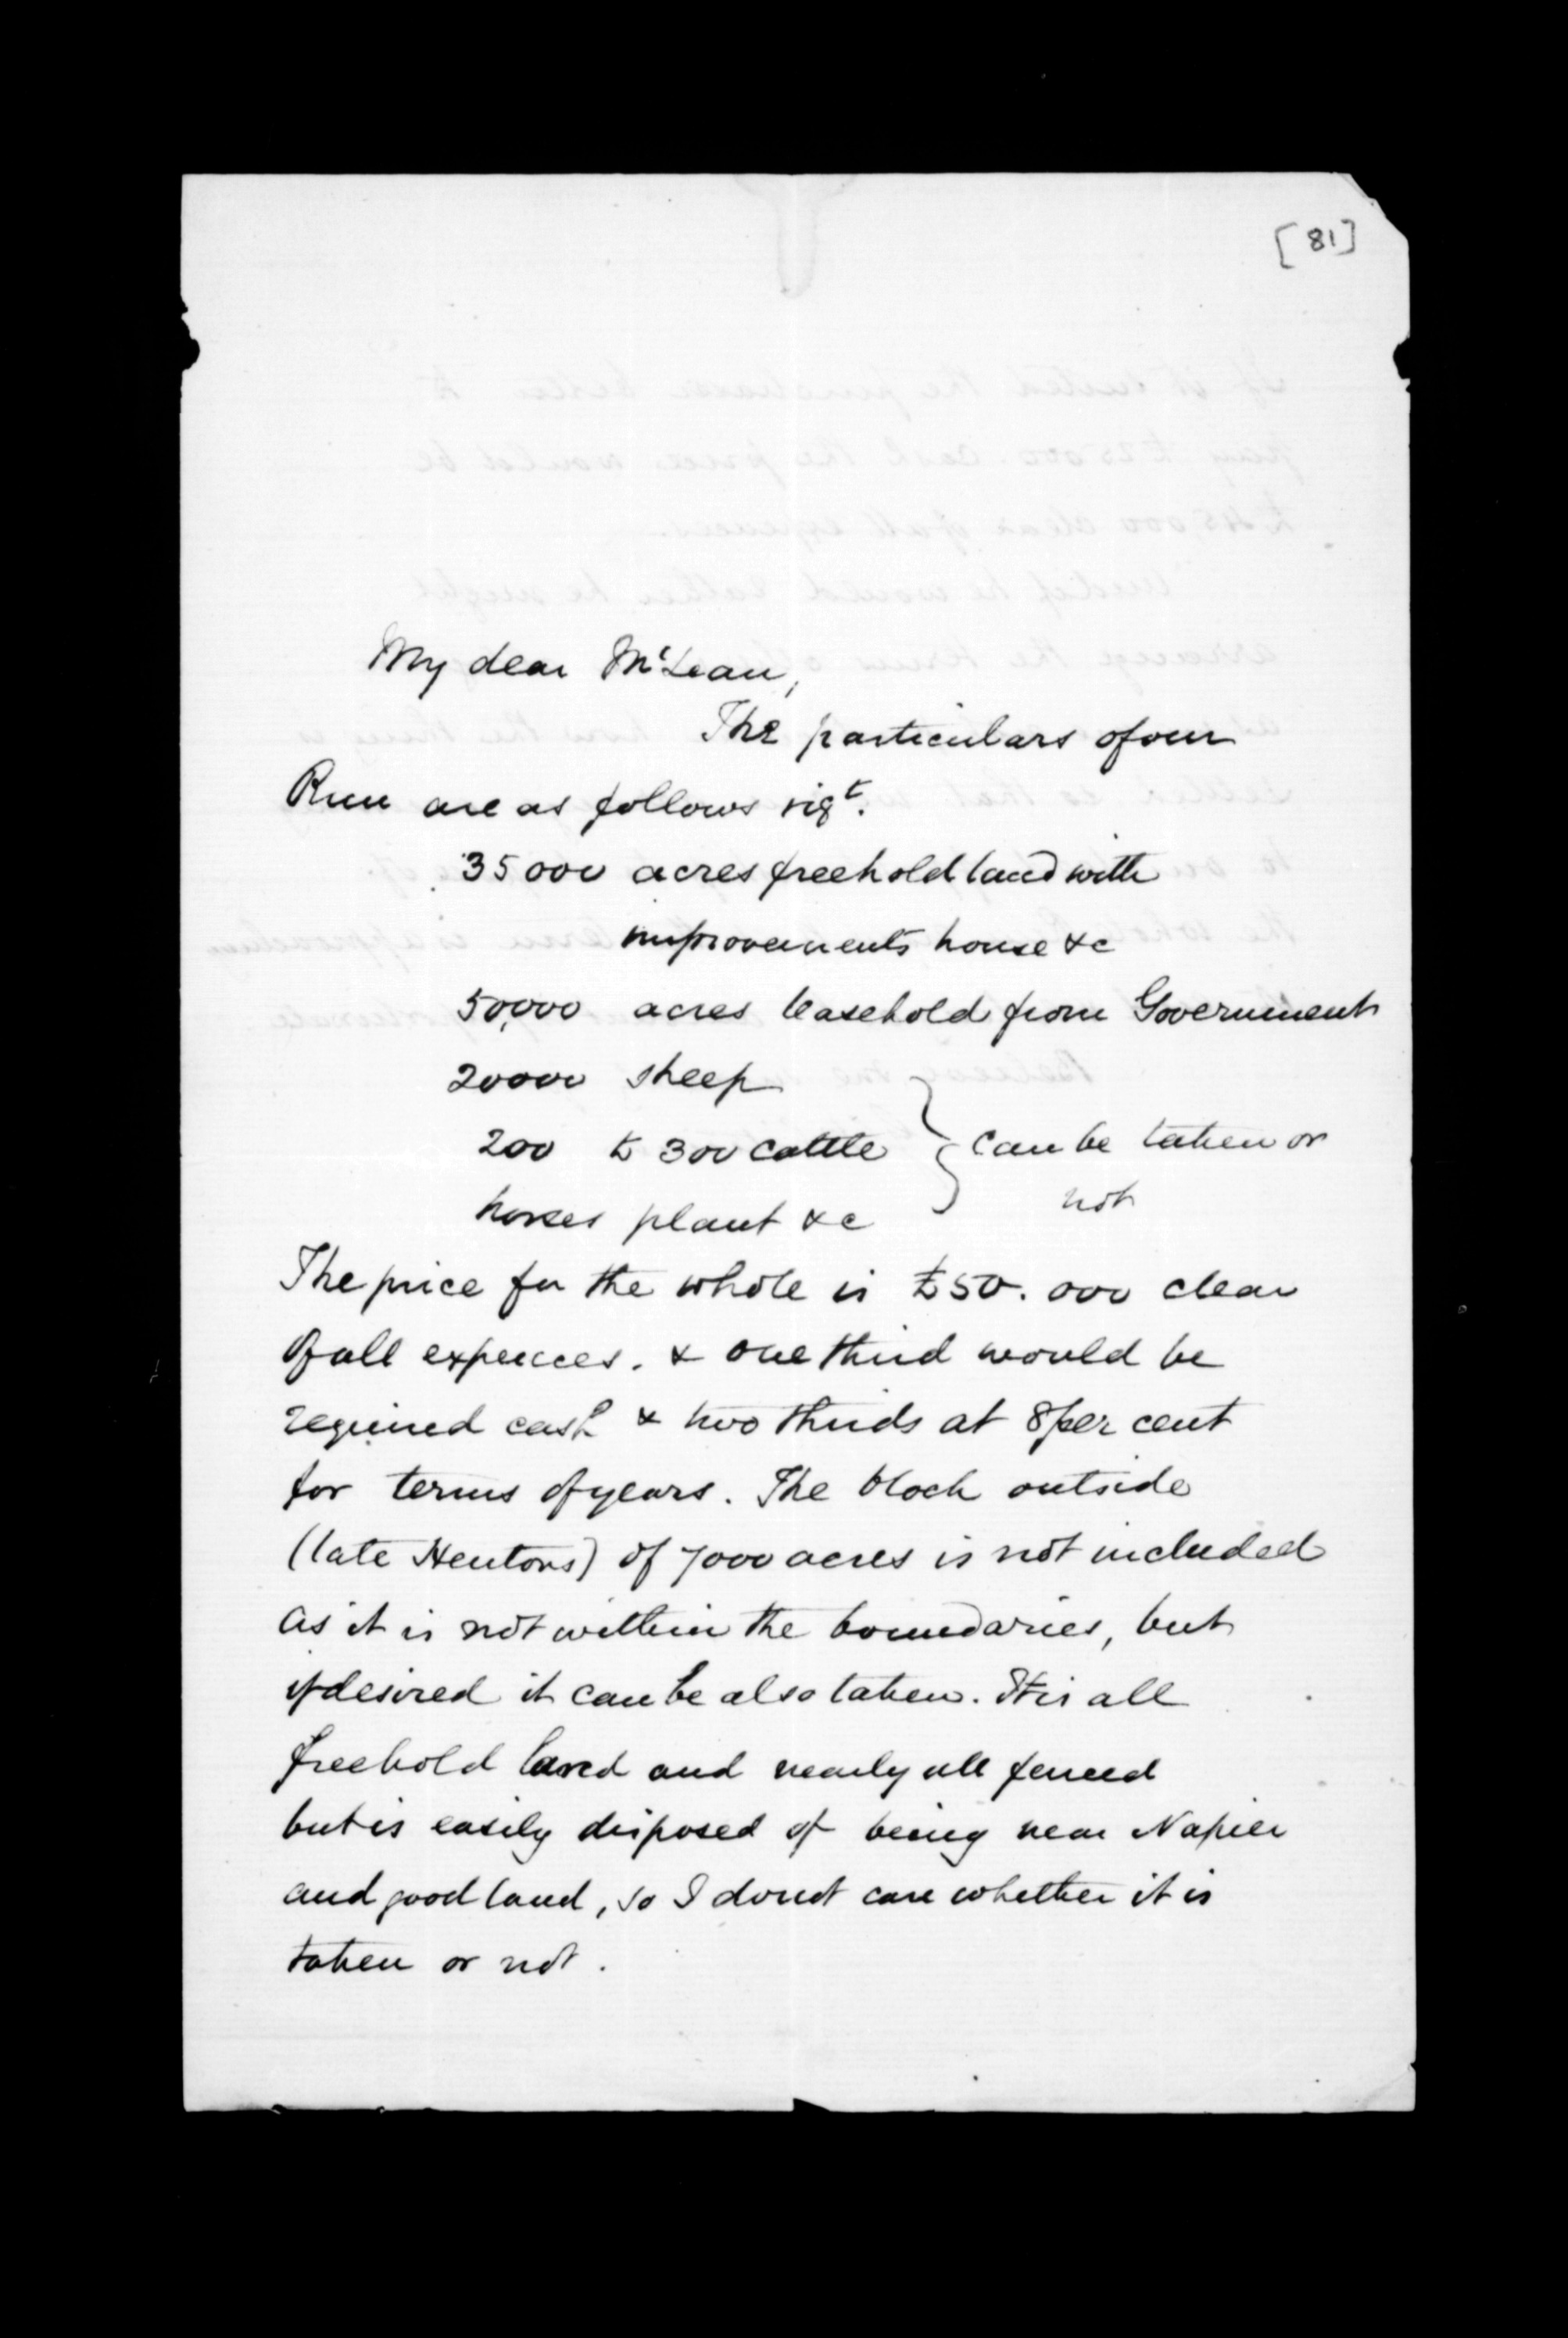 [81]
My dear McLean,
The particulars of our
Run are as follows vigt.
35000 acres freehold land with
improvements house &c
50,000 acres leasehold from Government
20000 sheep
200 to 300 cattle } can be taken or
horses plant &c not
The price for the whole is £50.000 clear
of all expences. & one third would be
required cash & two thirds at 8 per cent
for terms of years. The block outside
(late Hentons) of 7000 acres is not included
as it is not within the boundaries, but
if desired it can be also taken. It is all
freehold land and nearly all fenced
but is easily disposed of being near Napier
and good land, so I dont care whether it is
taken or not.